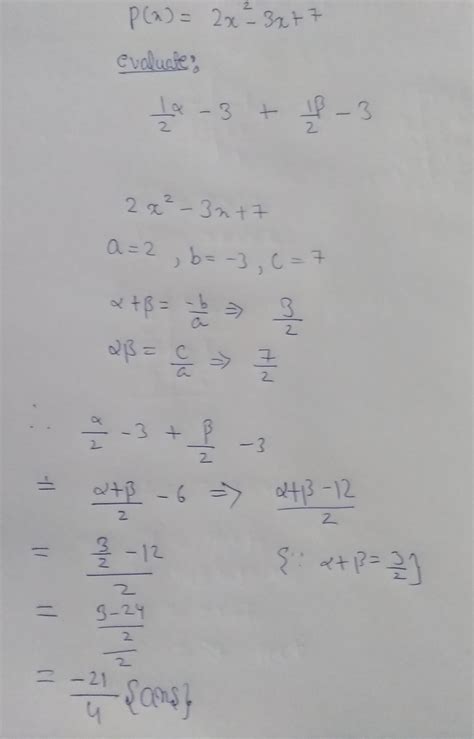 p(x) = 2x² - 3x + 7
evaluate:
1/2 α - 3 + 1β/2 - 3
2x² - 3x + 7
a = 2 , b = -3 , c = 7
α+β = -b/a ⇒ 3/2
αβ = c/a ⇒ 7/2
∴ α/2 - 3 + β/2 - 3
= (α+β)/2 - 6 ⇒ (α+β-12)/2
= (3/2 - 12)/2 {∵ α+β = 3/2}
= ((3-24)/2)/2
= -21/4 {ans}